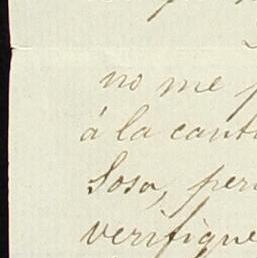 no me p
á la canti
Sosa, pero
verifique